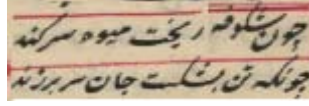 چون شکوفه ریخت میوه سر کند
چونکه تن بشکست جان سر برزند